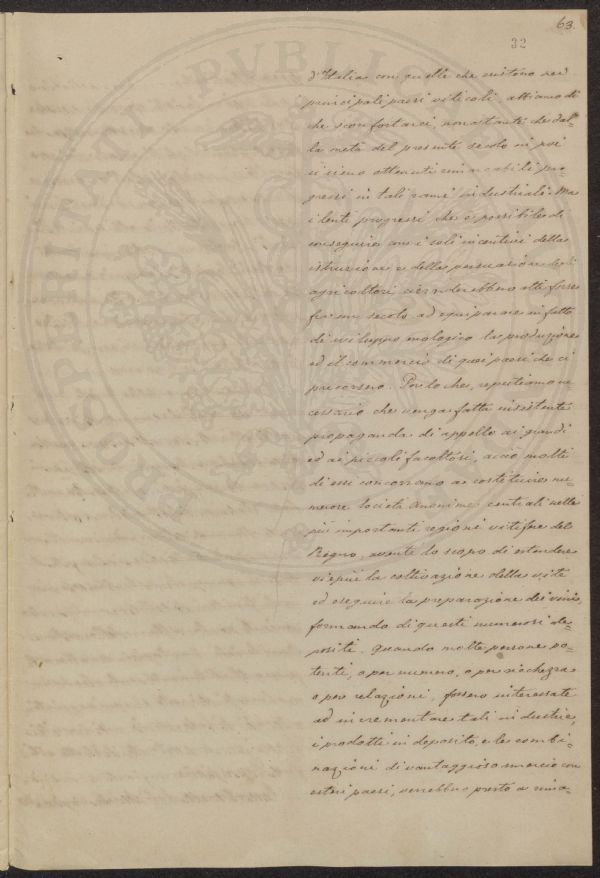 63.
32
PROSPERITATI PVBLICAE
d'Italia con quelli che esistono nei
principali paesi viticoli, abbiamo di
che sconfortarci, nonostante che dal-
la metà del presente secolo in poi
si sieno ottenuti rimarcabili pro-
gressi in tali rami industriali. Ma
i lenti progressi che è possibile di
conseguire con i soli incentivi della
istruzione e della persuasione degli
agricoltori, ci renderebbero atti forse
fra un secolo ad equiparare in fatto
di sviluppo enologico la produzione
ed il commercio di quei paesi che ci
precorsero. Per lo che, reputiamo ne-
cessario che venga fatta insistente
propaganda di appello ai grandi
ed ai piccoli facoltosi, acciò molti
di essi concorrano a costituire nu-
merose Società Anonime centrali nelle
più importanti regioni vitifere del
Regno, avente lo scopo di estendere
viepiù la coltivazione della vite
ed eseguire la preparazione dei vini,
formando di questi numerosi de-
positi. Quando molte persone po-
tenti, o per numero, o per ricchezza
o per relazioni, fossero interessate
ad incrementare tali industrie,
i prodotti in deposito, e le combi-
nazioni di vantaggioso smercio con
esteri paesi, verrebbero presto a rima-